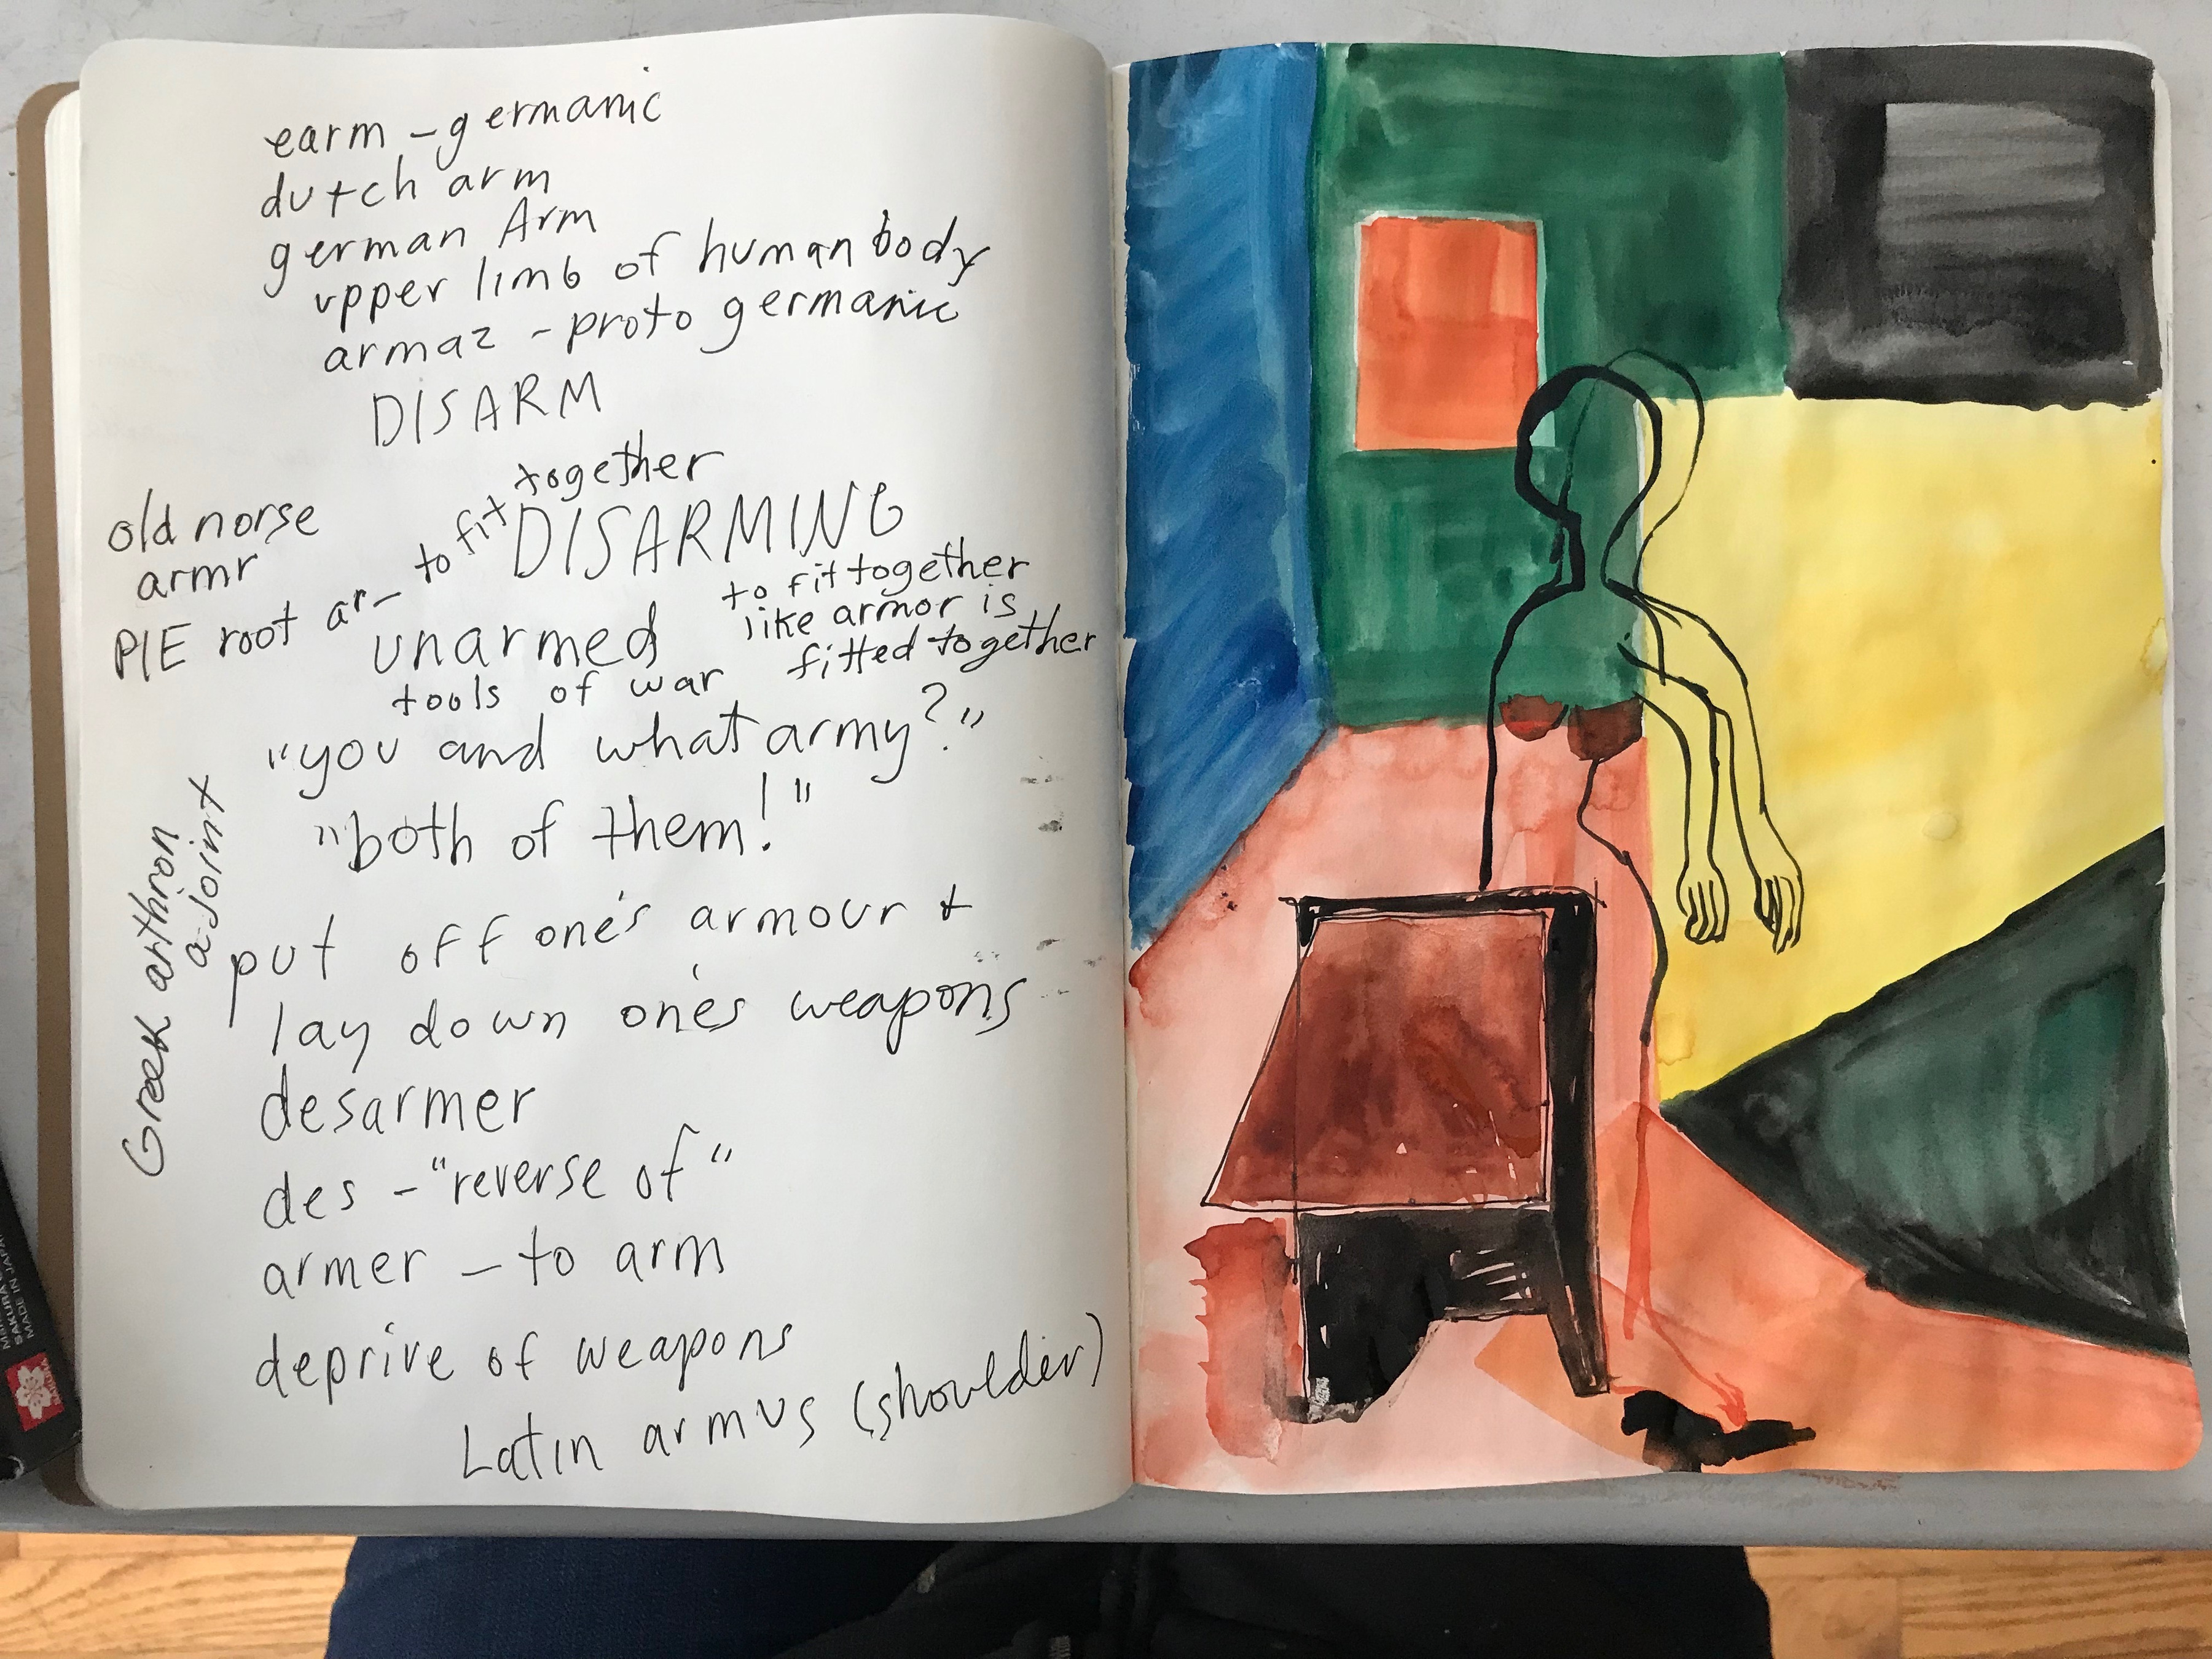 earm - germanic
dutch arm
german Arm
upper limb of human body
armaz - proto germanic
DISARM
together
old norse
armr
PIE root ar- to fit
DISARMING
to fit together
like armor is
fitted together
unarmed
tools of war
"you and what army?"
"both of them!"
Greek arthron
a joint
put off one's armour +
lay down one's weapons
desarmer
des - "reverse of"
armer - to arm
deprive of weapons
Latin armus (shoulder)
SAKURA
MADE IN JAPAN